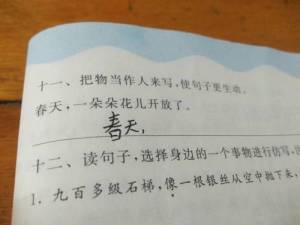 十一、把物当作人来写,使句子更生动。
春天,一朵朵花儿开放了。
春天,
十二、读句子,选择身边的一个事物进行仿写,
1. 九百多级石梯,像一根银丝从空中抛下来,